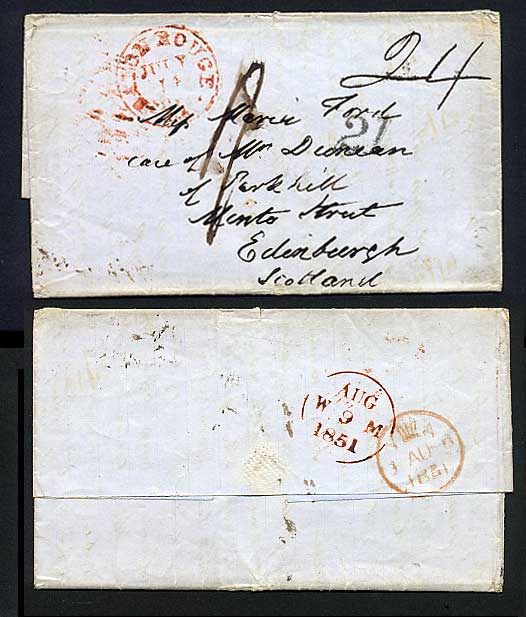 BATON ROUGE
JULY
24
21
Miss Maria Ford
care of Mrs Duncan
of Parkhill
Minto Street
Edinburgh
Scotland
AUG
W 9 M
1851
1851